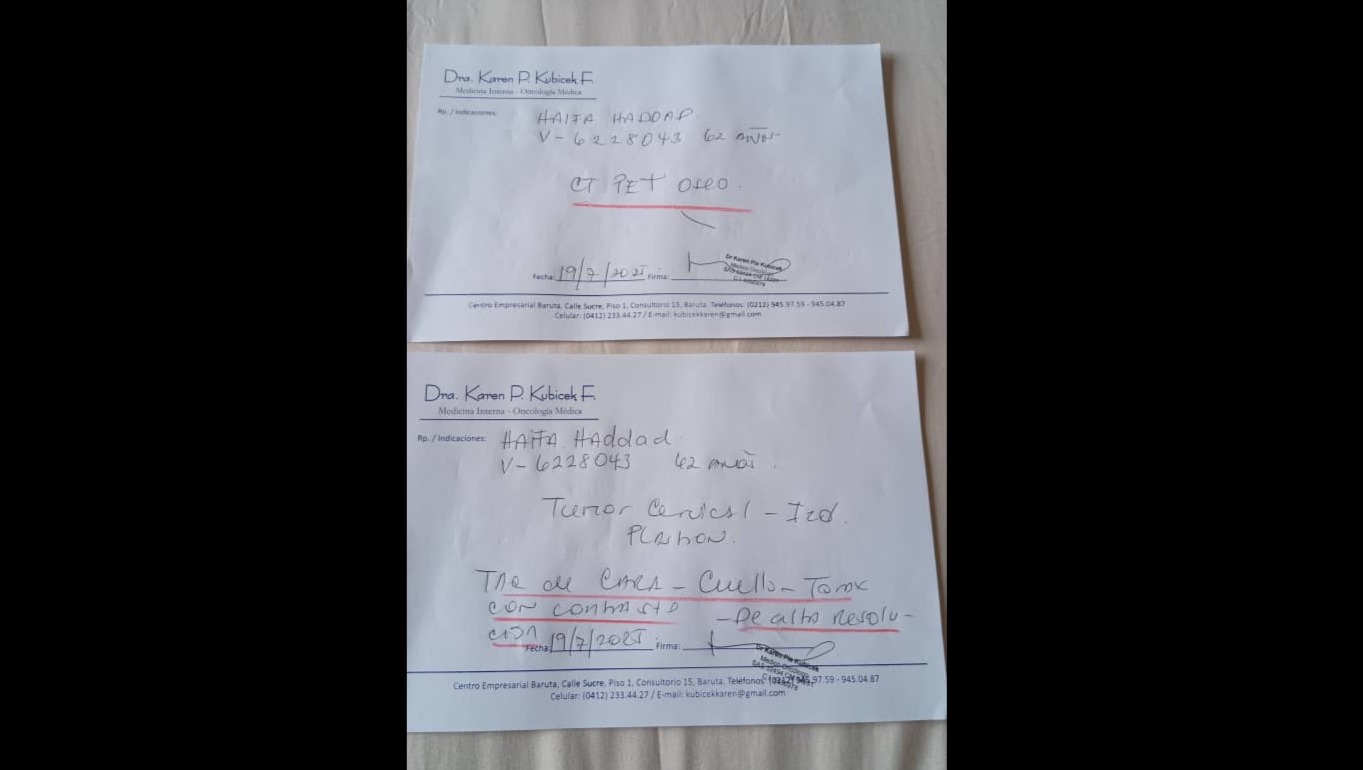 Dra. Karen P. Kubicek F.
Medicina Interna - Oncología Médica
Rp. / Indicaciones:
HAIFA HADDAD
V-6228043 62 años
CT PET oseo.
Dr Karen Pia Kubicek
Medico Oncologo
Fecha: 19/7/2025 Firma:
Centro Empresarial Baruta, Calle Sucre, Piso 1, Consultorio 15, Baruta. Telefonos: (0212) 945.97.59 - 945.04.87
Celular: (0412) 233.44.27 / E-mail: kubicekkaren@gmail.com
Dra. Karen P. Kubicek F.
Medicina Interna - Oncología Médica
Rp. / Indicaciones: HAIFA HAddad
V-6228043 62 años.
Tumor Cervical - Izd.
TAC de CARA - Cuello - Torax
con contraste - De alta resolu-
cion
Fecha: 19/7/2025 Firma:
Dr Karen Pia Kubicek
Medico Oncologo
Centro Empresarial Baruta, Calle Sucre, Piso 1, Consultorio 15, Baruta. Telefonos: (0212) 945.97.59 - 945.04.87
Celular: (0412) 233.44.27 / E-mail: kubicekkaren@gmail.com